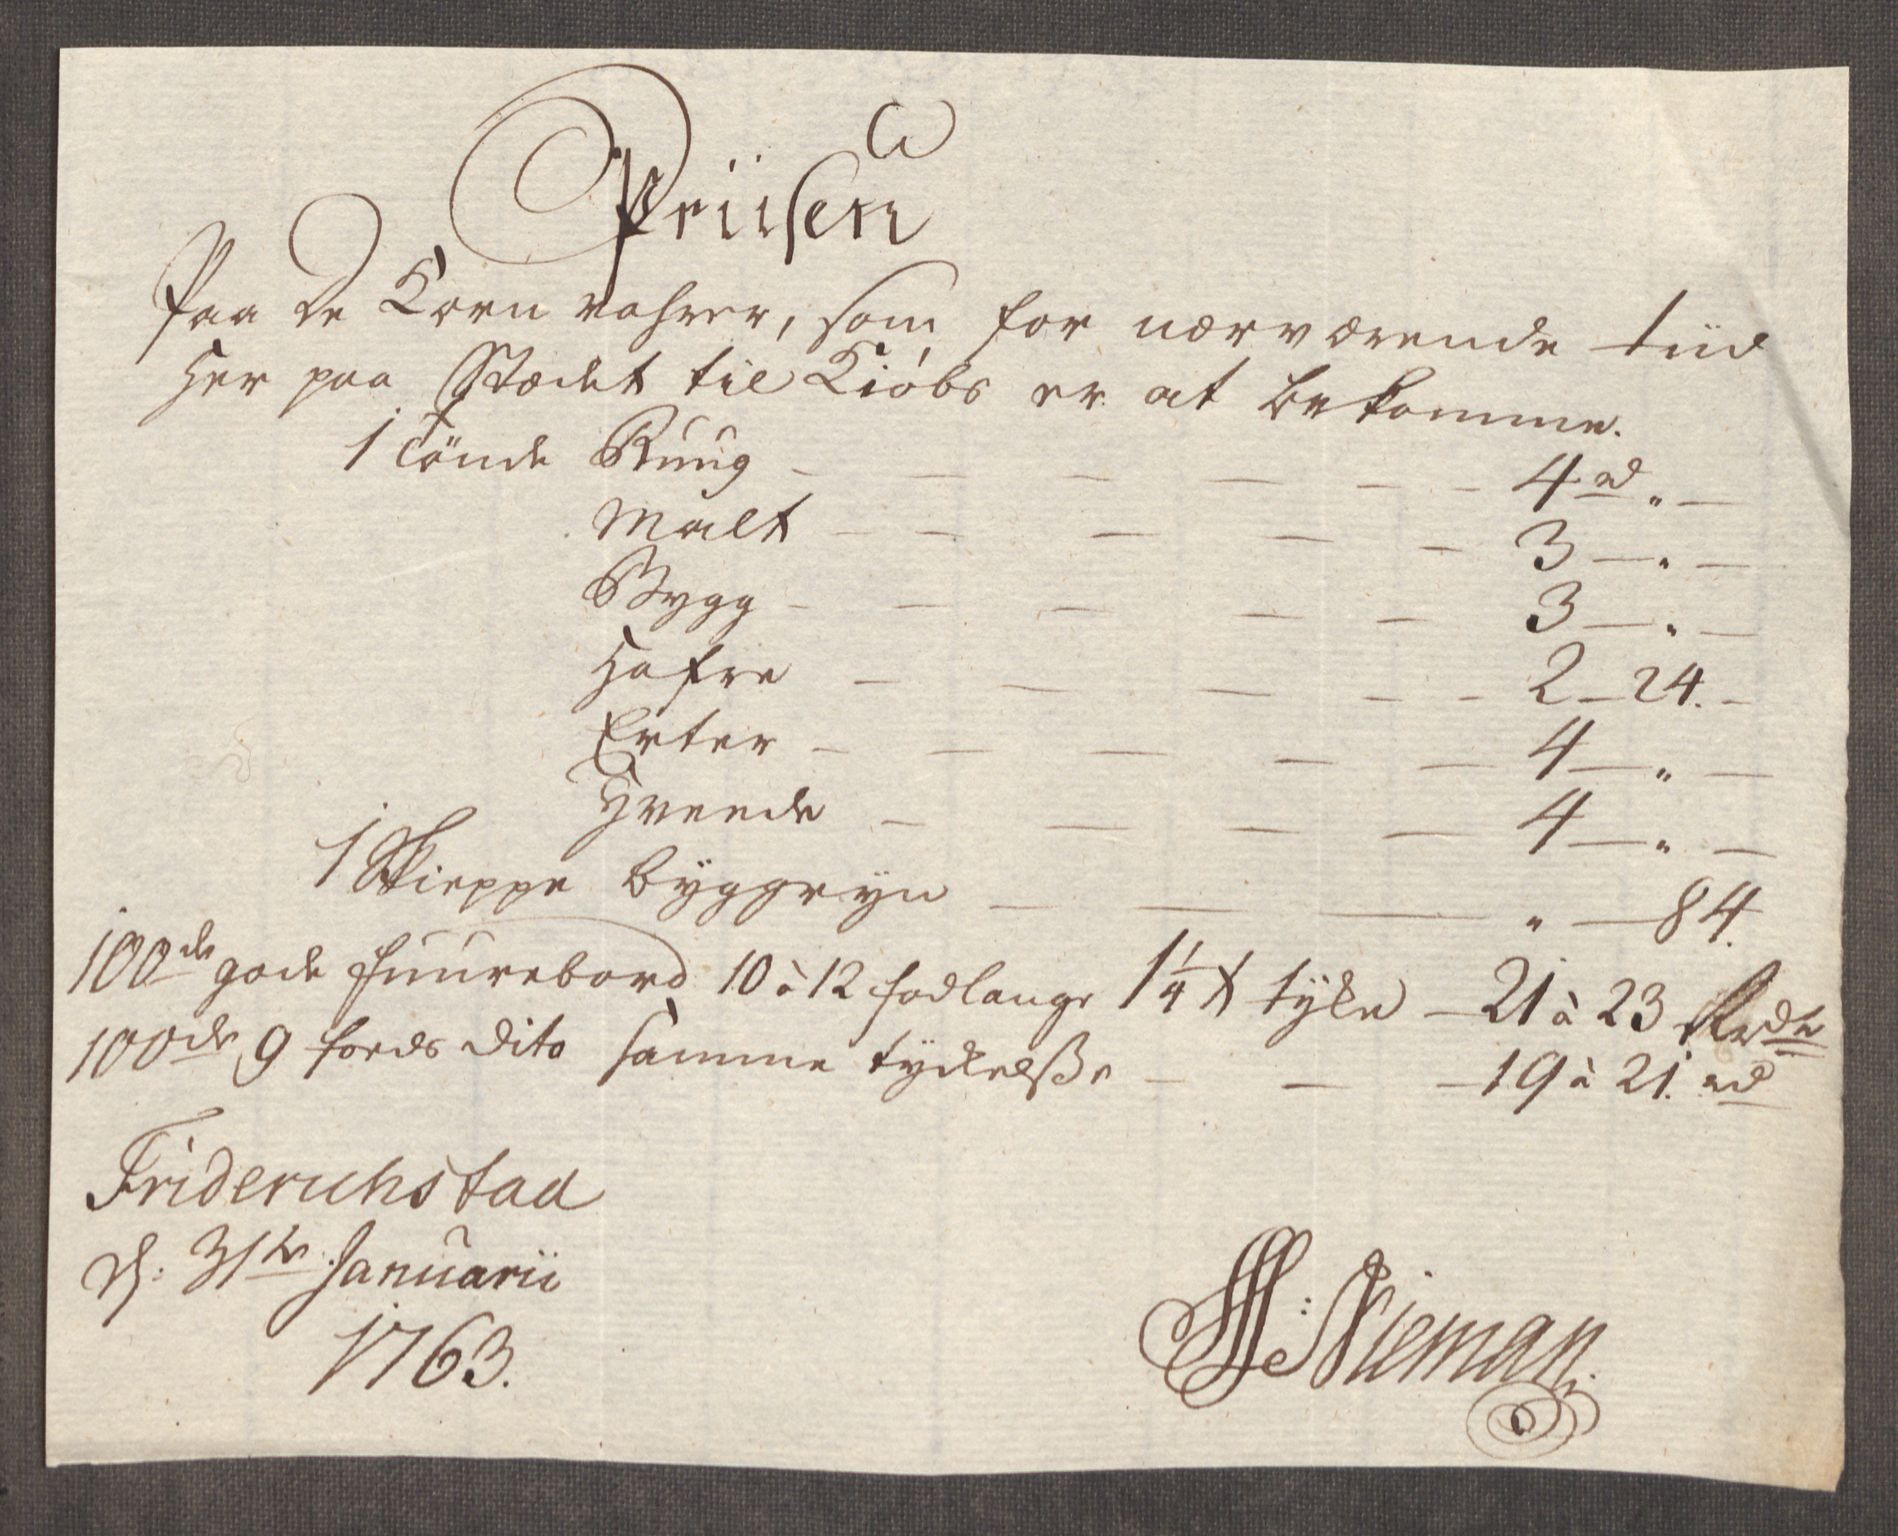 Priisen
Paa de Korn vahrer, som for nærværende tiid
Her paa Stædet til Kiøbs er at bekomme.
1 Tönde Ruug - - - - - - 4 rd " -
Malt - - - - - 3 - " -
Bygg - - - - - 3 - " -
Hafre - - - - - 2 - 24. -
Erter - - - - - 4 - " -
Hveede - - - - 4 - " -
1 Skieppe byggryn - - - " - 84.
100de gode fuurebord 10 à 12 fodlange 1 1/4 t tyke - 21 à 23
100de 9 foeds dito samme tyckelsse - - - 19 à 21. rd
Friderichstad
d: 31te Januarii
1763.
Nieman.